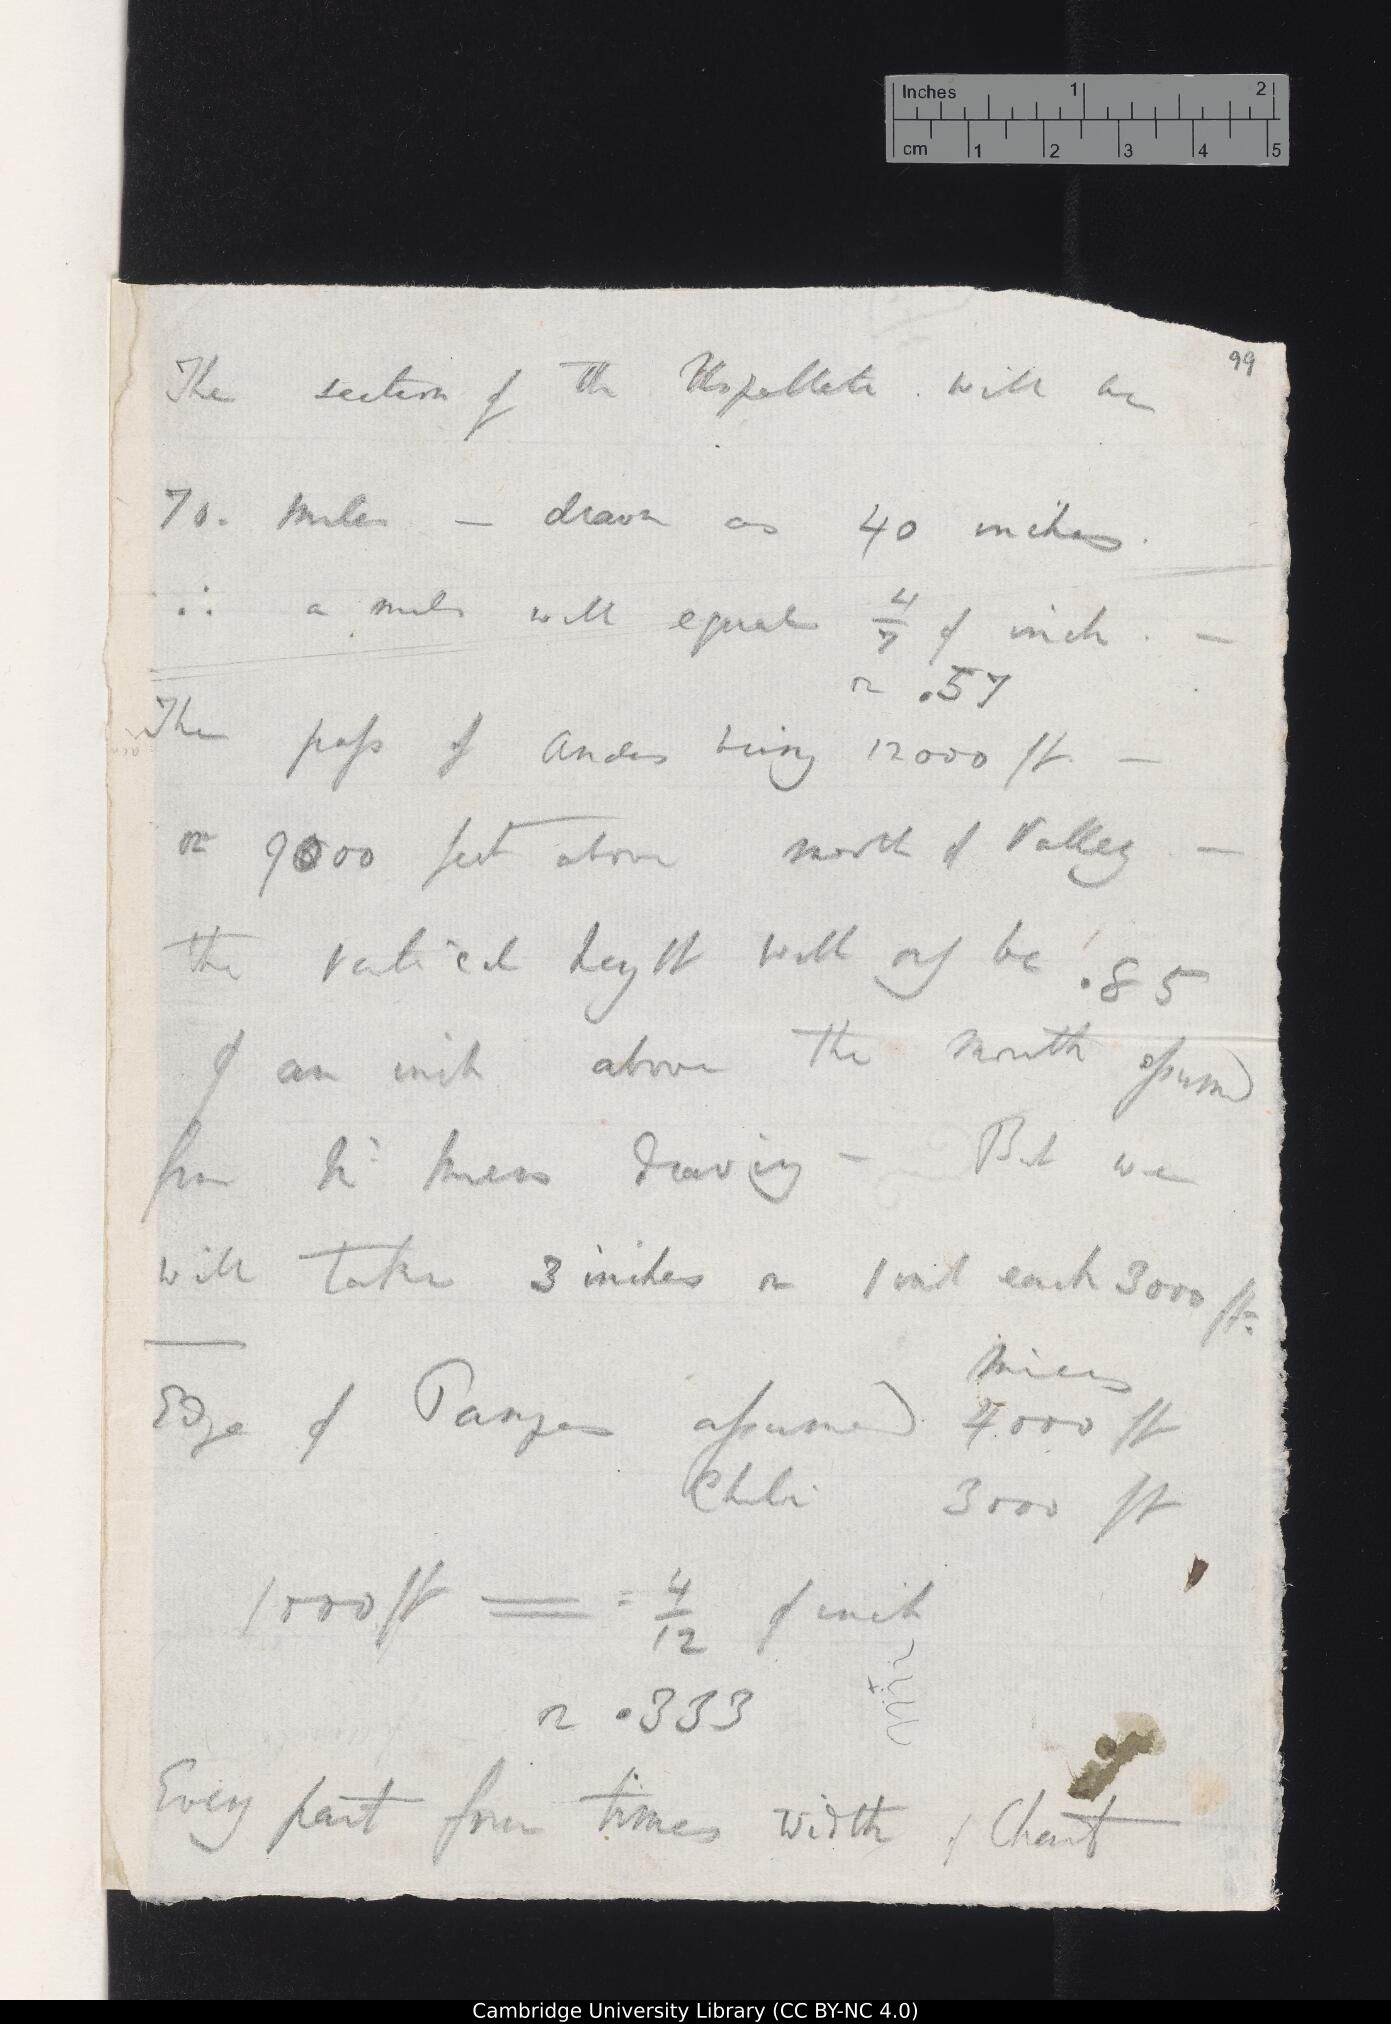 Inches 1 2
cm 1 2 3 4 5
99
The section of the Uspallata will be
70. miles — drawn as 40 inches.
∴ a mile will equal 4/7 of inch. —
or .57
The pass of Andes being 12000 ft —
or 9000 feet above mouth of Valley —
the vertical heyht will only be .85
of an inch above the mouth assumed
from Mr Miers drawing — But we
will take 3 inches or 1 inch each 3000 ft.
Miers
Edge of Pampas assumed 4000 ft
Chili 3000 ft
1000 ft = 4/12 of inch
or .333
Every part four times width of Chart
Cambridge University Library (CC BY-NC 4.0)